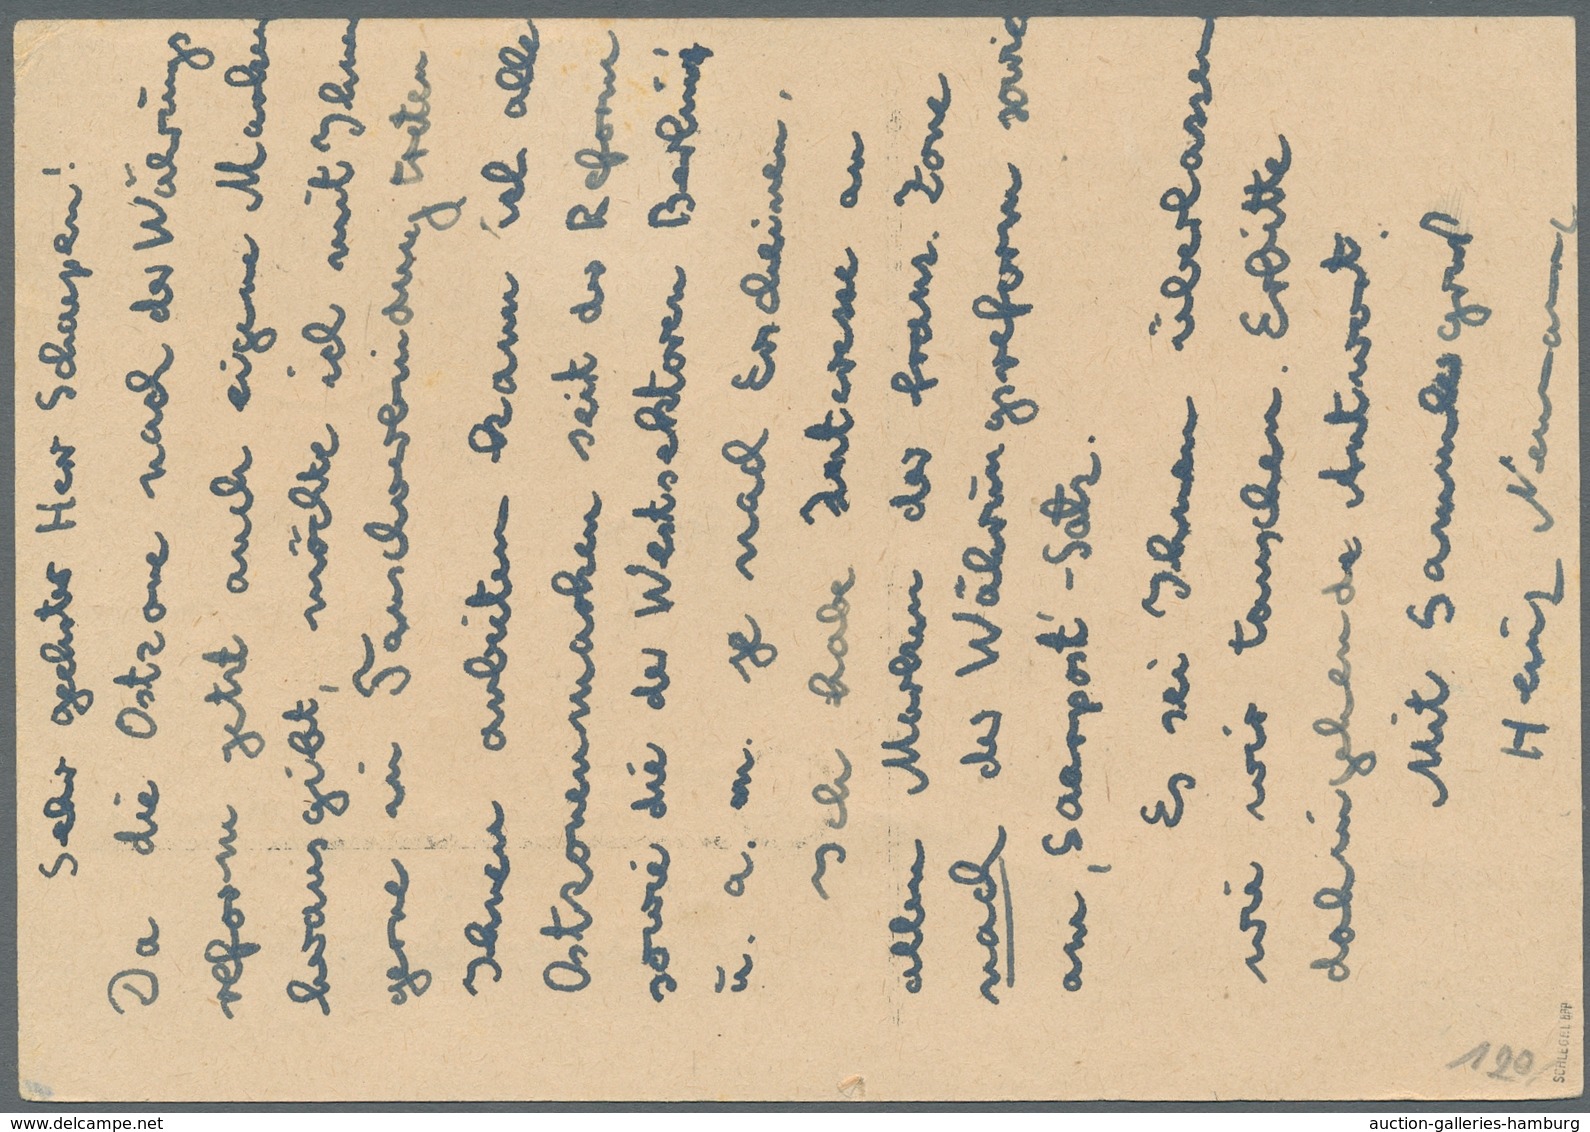 Sehr geehrter Herr Schaepen!
Da die Ostzone nach der Währungs
reform jetzt auch eigene Marken
herausgibt, möchte ich mit Ihnen
gerne in Tauschverbindung treten
Ihnen anbieten kann ich alle
Ostzonenmarken seit der Reform
sowie die der Westsektoren Berlins
u. a. m. je nach Erscheinen.
Ich habe Interesse an
allen Marken der franz. Zone
nach der Währungsreform sowie
am "Saarpost"-Satz.
Es sei Ihnen überlassen
wie wir tauschen. Erbitte
dahingehende Antwort.
Mit Sammlergruß
Heinz Neumann
120,
SCHLEGEL BPP
auction-galleries-hamburg